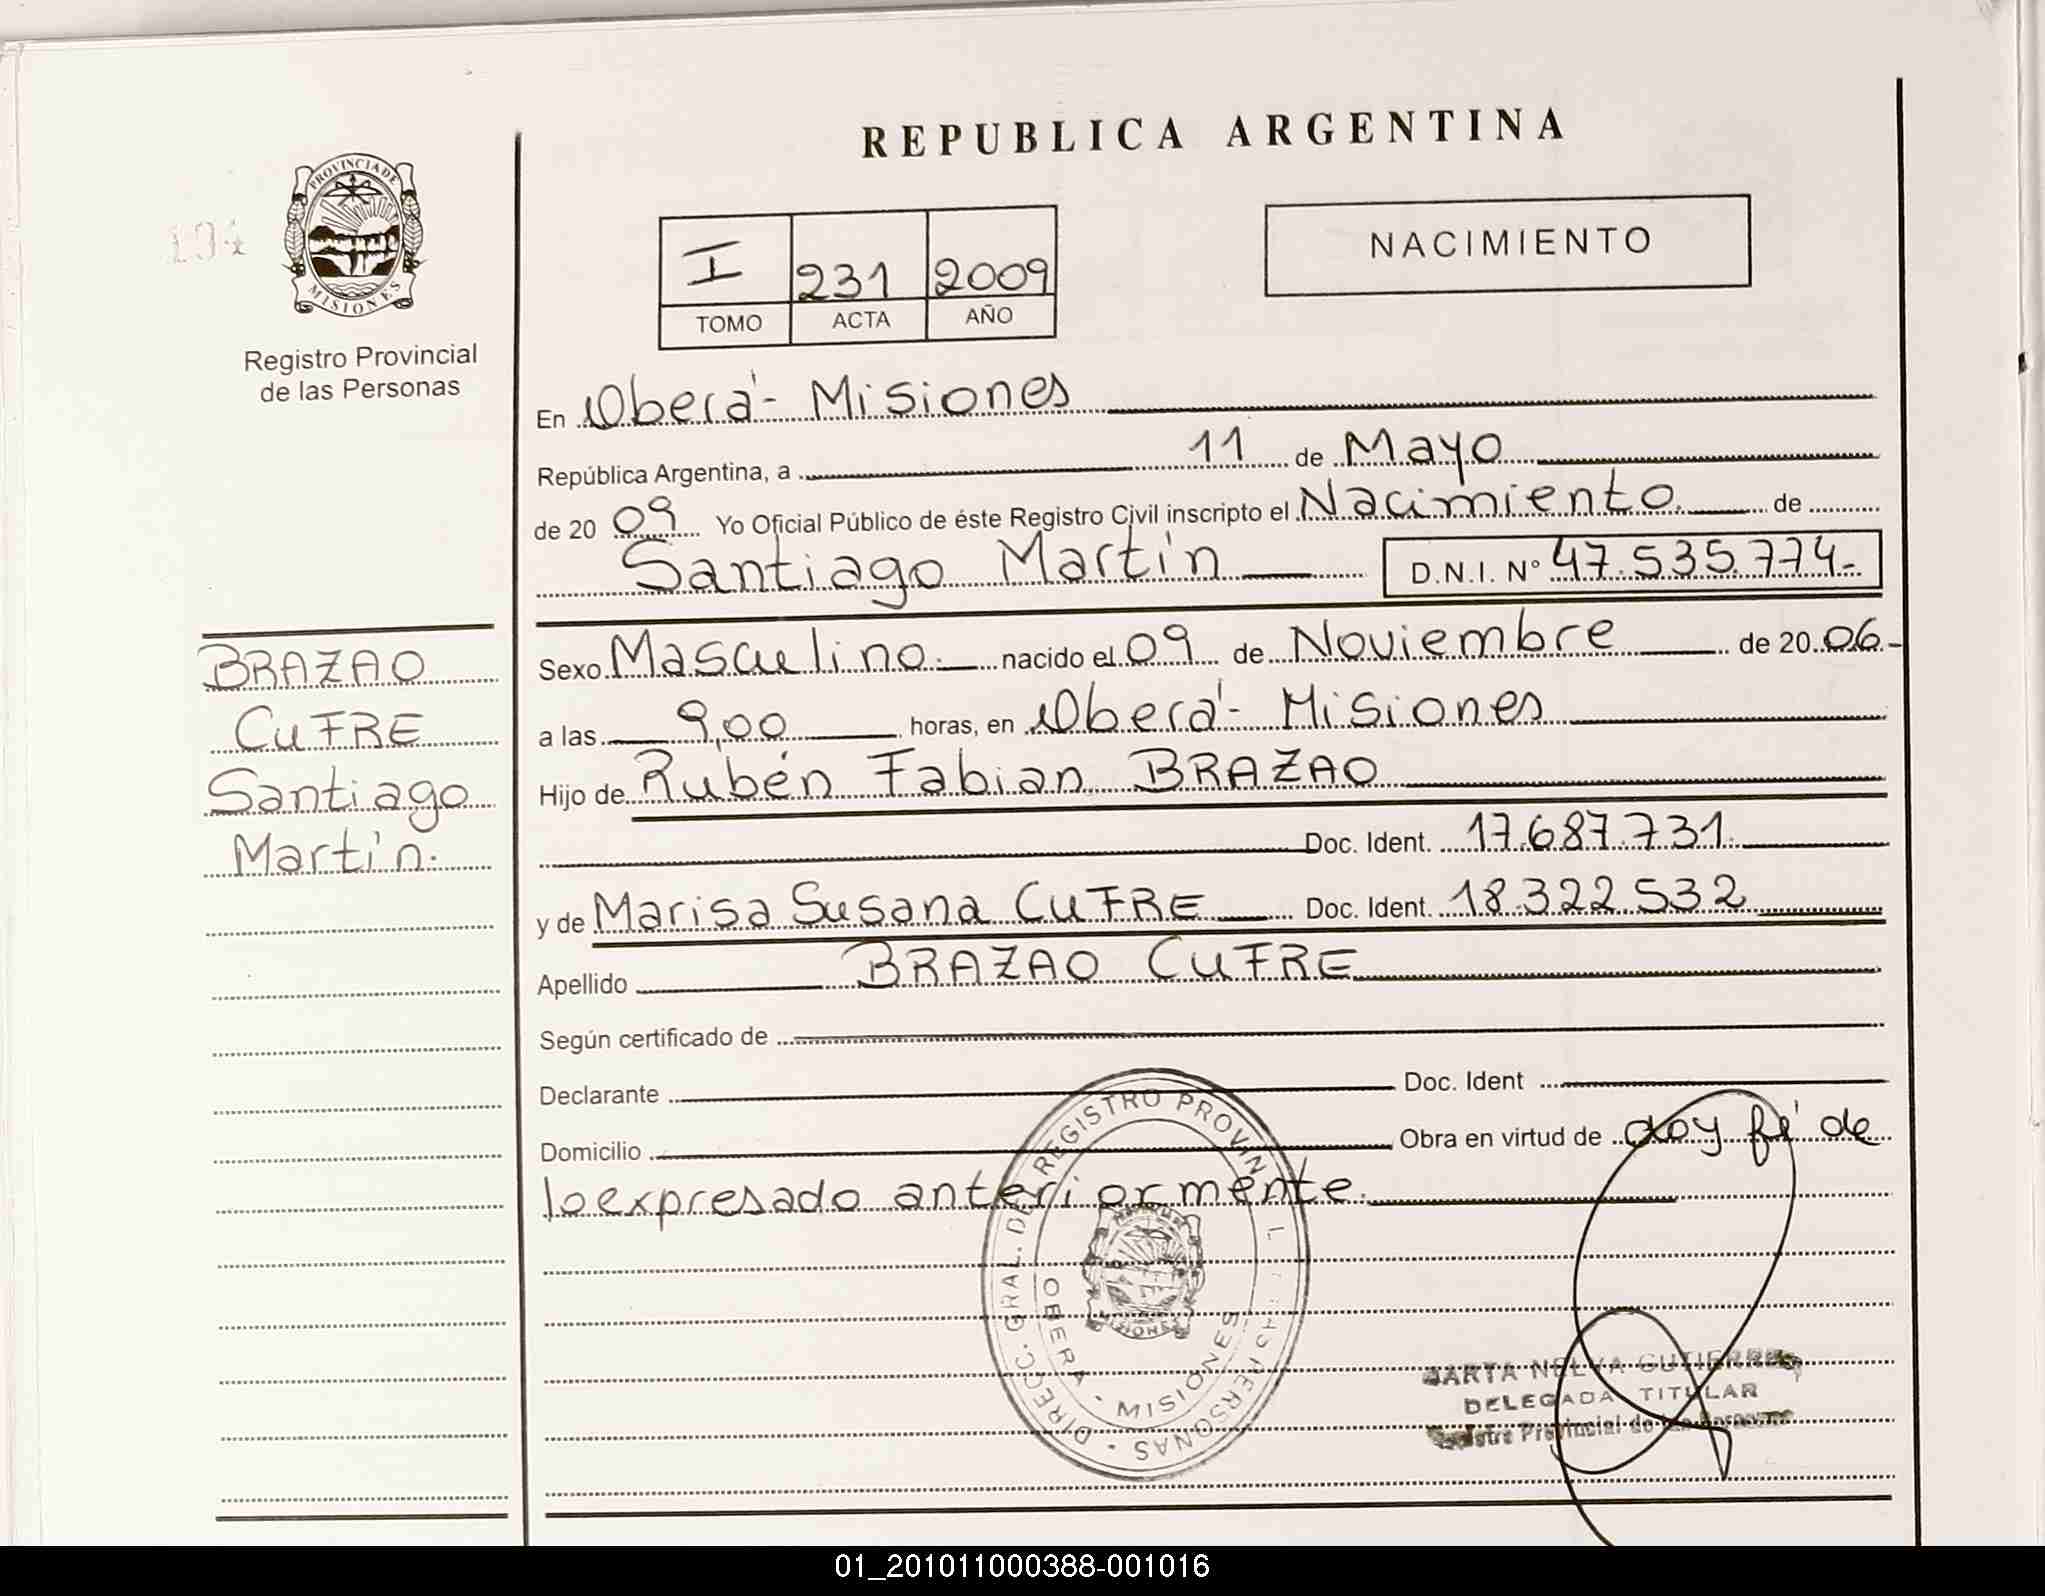 REPUBLICA ARGENTINA
134
PROVINCIA DE
MISIONES
Registro Provincial
de las Personas
I 231 2009
TOMO ACTA AÑO
NACIMIENTO
En Oberá - Misiones
República Argentina, a 11 de Mayo
de 20 09 Yo Oficial Público de éste Registro Civil inscripto el Nacimiento. de
Santiago Martín D.N.I. Nº 47.535.774.-
BRAZAO
CUFRE
Santiago
Martín.
Sexo Masculino. nacido el 09 de Noviembre de 20 06.-
a las 9,00 horas, en Oberá - Misiones
Hijo de Rubén Fabian BRAZAO
Doc. Ident. 17.687.731.
y de Marisa Susana CUFRE Doc. Ident. 18.322.532
Apellido BRAZAO CUFRE
Según certificado de
Declarante Doc. Ident
Domicilio Obra en virtud de doy fé de
lo expresado anteriormente.
DIRECC. GRAL. DEL REGISTRO PROVIN PERSONAS
OBERA - MISIONES
MISIONES
NELVA GUTIERREZ
DELEGADA TITULAR
Provincial de
01_201011000388-001016